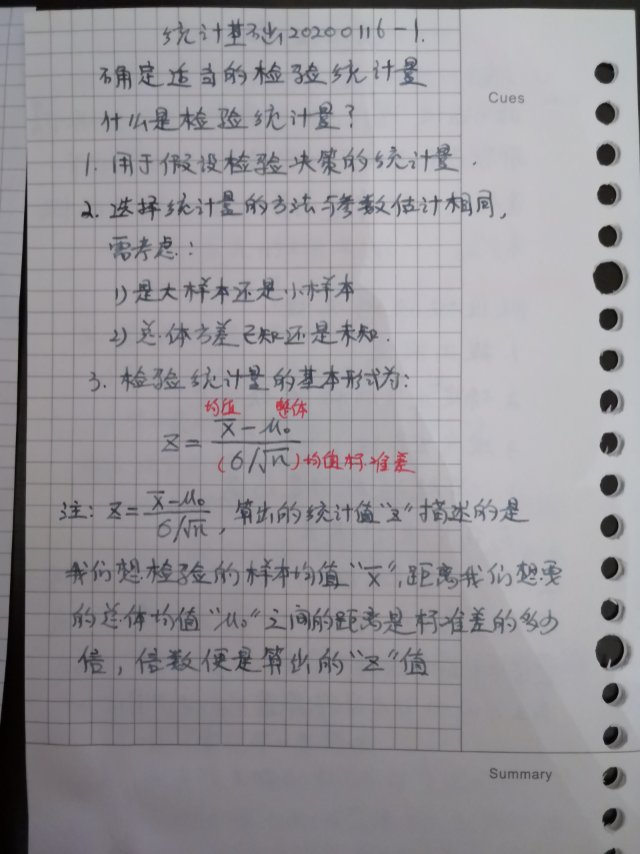 统计基础20200116-1.
确定适当的检验统计量
什么是检验统计量?
1. 用于假设检验决策的统计量.
2. 选择统计量的方法与参数估计相同,
需考虑:
1) 是大样本还是小样本
2) 总体方差已知还是未知.
3. 检验统计量的基本形式为:
均值 整体
Z = (x̄ - μ₀) / (σ/√n) 均值标准差
注: Z = (x̄-μ₀) / (σ/√n), 算出的统计值“Z”描述的是
我们想检验的样本均值“x̄”,距离我们想要
的总体均值“μ₀”之间的距离是标准差的多少
倍, 倍数便是算出的“Z”值
Cues
Summary